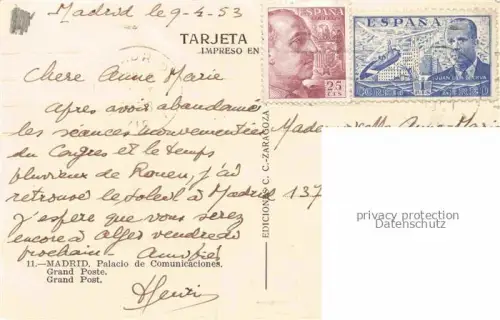 Madrid le 9-4-53
TARJETA
IMPRESO EN
ESPAÑA
25
CTS
ESPAÑA
JUAN DE LA CIERVA
CORREO AEREO
Chere Anne Marie
Apres avoir abandonné
les séances mouvementées
du Congres et le temps
pluvieux de Rouen, j'ai
retrouvé le soleil à Madrid
J'espère que vous serez
encore à Alger vendredi
prochain - Amitiés
Henri
Mademoiselle Anne Marie
137
EDICIONES C. C.-ZARAGOZA
11.—MADRID. Palacio de Comunicaciones.
Grand Poste.
Grand Post.
privacy protection
Datenschutz